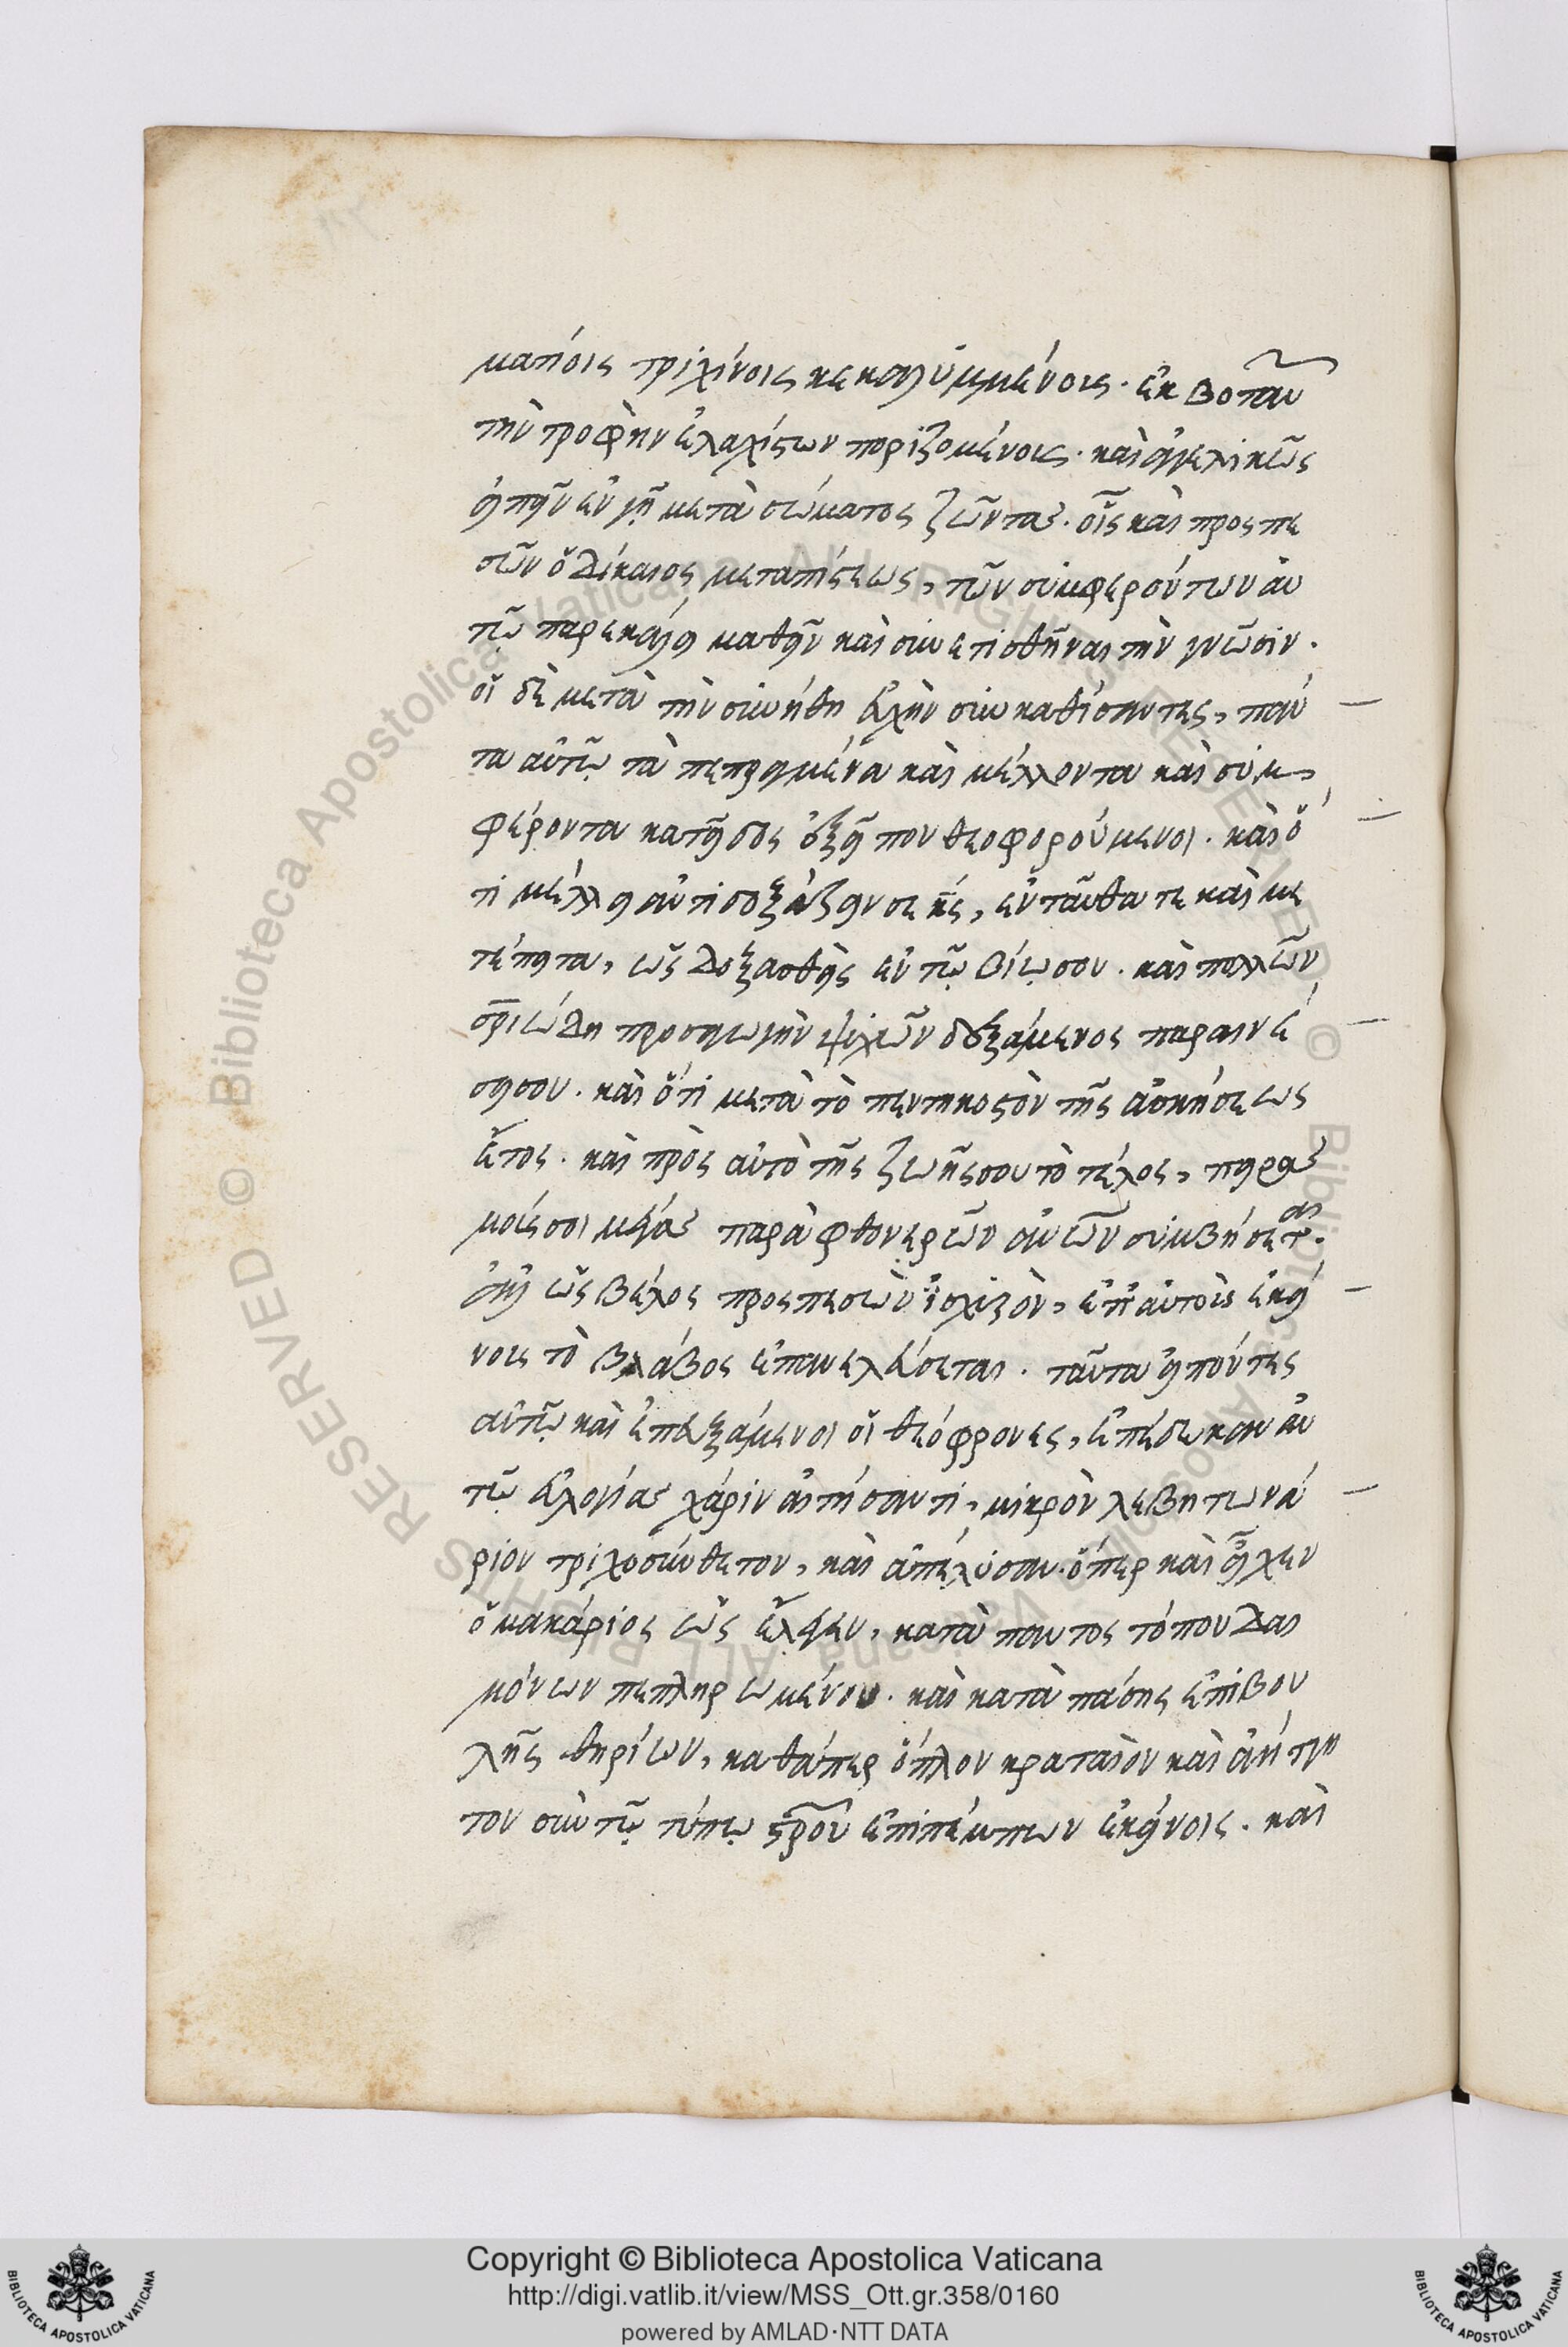 ματίοις τριχίνοις κεκαλυμμένοις. ἐκ βοτανῶν
τὴν τροφὴν ἐλαχίστων ποριζομένοις. καὶ ἀγγελικῶς
εἰπεῖν ἐν γῇ μετὰ σώματος ζῶντας. οἷς καὶ προσπε
σὼν ὁ δίκαιος μεταπίστεως, τῶν συμφερόντων αὐ
τῷ παρεκάλει μαθεῖν καὶ συνετισθῆναι τὴν γνῶσιν.
οἱ δὲ μετὰ τὴν συνήθη εὐχὴν συγκαθίσαντες, πάν
τα αὐτῷ τὰ πεπραγμένα καὶ μέλλοντα καὶ συμ
φέροντα κατεῖδος ἐξεῖπον θεοφορούμενοι. καὶ ὅ
τι μέλλει ἀντιδοξάζειν σε κς, ἐνταῦθα τε καὶ με
τέπειτα, ὡς δοξασθεὶς ἐν τῷ βίῳ σου. καὶ πολλῶν
σριώδη προσαγωγὴν ψυχῶν δεξάμενος παραινέ
σει σου. καὶ ὅτι μετὰ τὸ πεντηκοστὸν τῆς ἀσκήσεως
ἔτος. καὶ πρὸς αὐτὸ τῆς ζωῆς σου τὸ τέλος, πειρας
μοίσοι μέγας παρὰ φθονερῶν ανων συμβήσεται.
ἀλλ ὡς βέλος προσπεσὼν ἰσχιζὸν, ἐπ αὐτοῖς ἐκεί
νοις τὸ βλάβος ἐπανελεύσεται. ταῦτα εἰπόντες
αὐτῷ καὶ ἐπευξάμενοι οἱ θεόφρονες, ἐπέδωκαν αὐ
τῷ εὐλογίας χάριν αἰτήσαντι, μικρὸν λεβητωνά
ριον τριχοσύνθετον, καὶ ἀπέλυσαν. ὅπερ καὶ εἶχεν
ὁ μακάριος ὡς ἔλεγεν, κατὰ παντὸς τόπου δαι
μόνων πεπληρωμένου. καὶ κατὰ πάσης ἐπιβου
λῆς θηρίων, καθάπερ ὅπλον κραταιὸν καὶ ἀήττη
τον σὺν τῷ τύπῳ σρου ἐπιπέμπων ἐκείνοις. καὶ
Copyright © Biblioteca Apostolica Vaticana
http://digi.vatlib.it/view/MSS_Ott.gr.358/0160
powered by AMLAD·NTT DATA